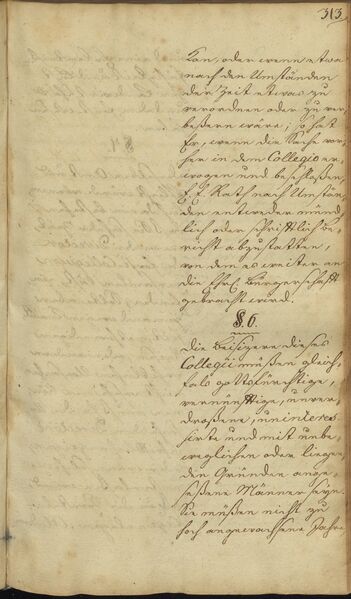 313
Kan, oder wenn etwa
nach den Umständen
der Zeit etwas zu
verordnen oder zu ver,
beßern wäre; so hat
Er, wenn die Sache vor,
her in dem Collegio er,
wogen und beschloßen,
E. E. Rath nach Umstän,
den entweder münd,
lich oder schriftlich be,
richt abzustatten,
von dem es weiter an
die Ehrl. Bürgerschafft
gebracht wird.
§. 6.
Die Beisizere dieses
Collegii müßen gleich,
fals gottsfürchtige,
vernünftige, unver,
droßene, uninteres
sirte und mit unbe,
weglichen oder liegen,
den Gründen ange,
seßene Männer seyn.
Sie müßen nicht zu
hoch angewachsene Jahre